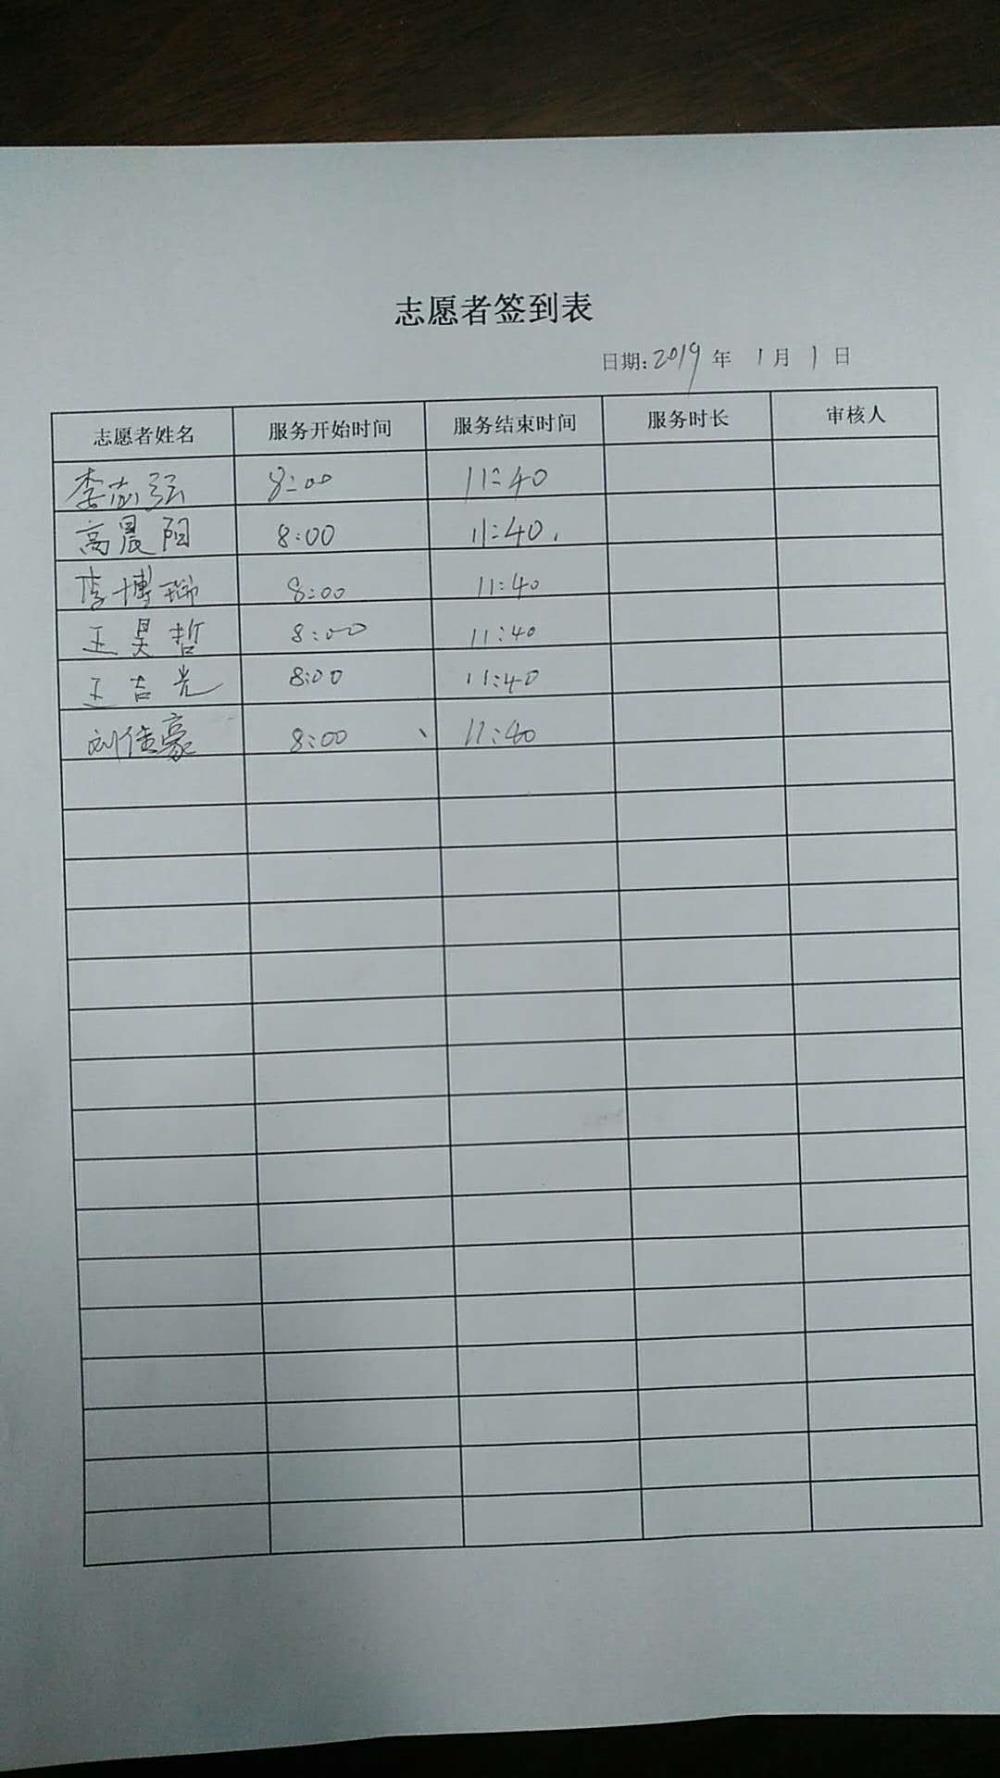 志愿者签到表
日期:2019年 1月 1日
志愿者姓名 服务开始时间 服务结束时间 服务时长 审核人
李志强 8:00 11:40
高晨阳 8:00 11:40.
李博瑞 8:00 11:40
王昊哲 8:00 11:40
王吉光 8:00 11:40
刘俊豪 8:00 、 11:40